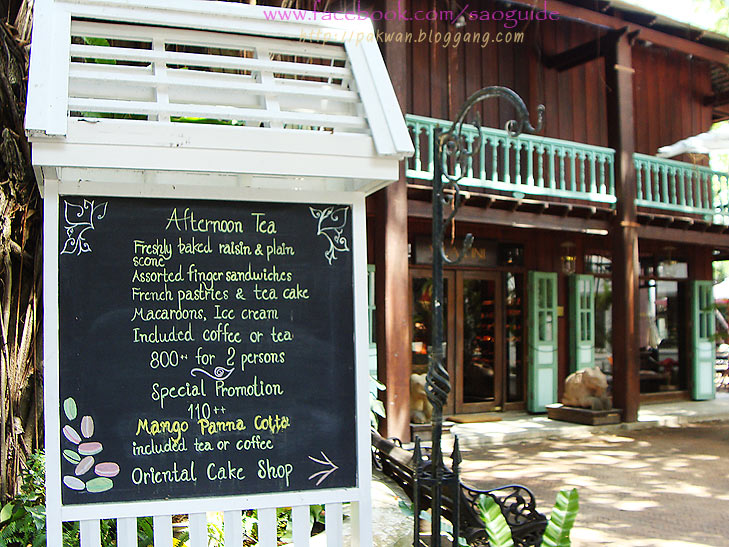 www.facebook.com/saoguide
http://pakwan.bloggang.com
Afternoon Tea
Freshly baked raisin & plain
scone
Assorted finger sandwiches
French pastries & tea cake
Macaroons, Ice cream
Included coffee or tea
800++ for 2 persons
Special Promotion
110++
Mango Panna Cotta
included tea or coffee
Oriental Cake Shop